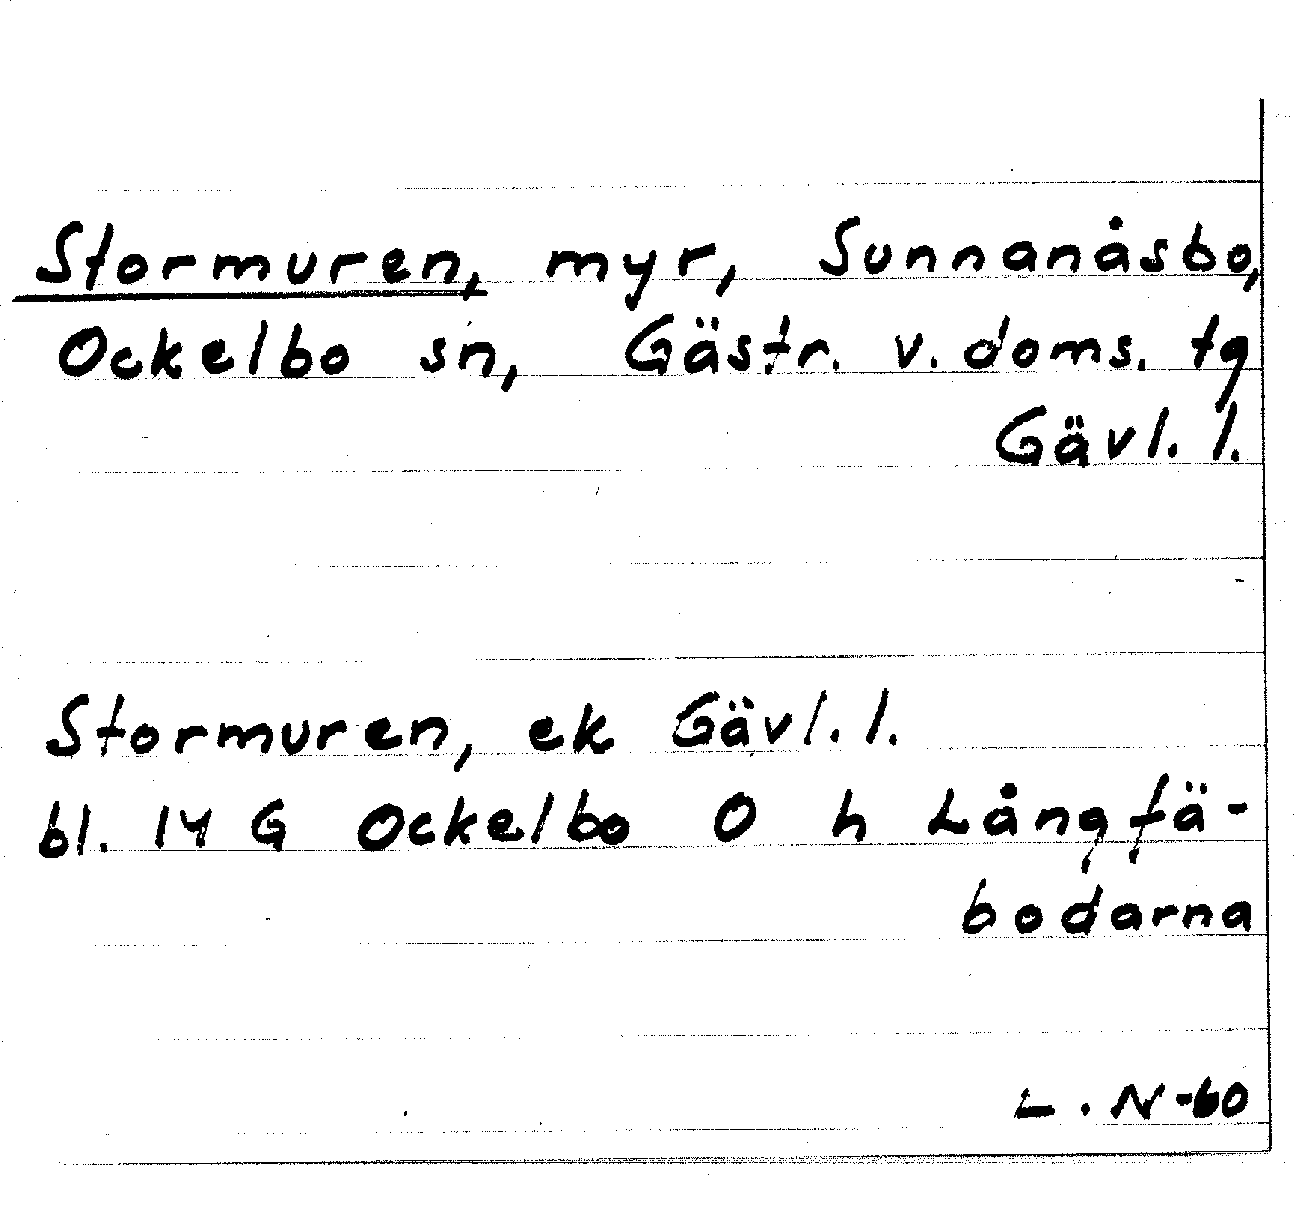 Stormuren, myr, Sunnanåsbo,
Ockelbo sn, Gästr. v. doms. tg
Gävl. l.
Stormuren, ek Gävl. l.
bl. 14 G Ockelbo O h Långfä-
bodarna
L. N-60